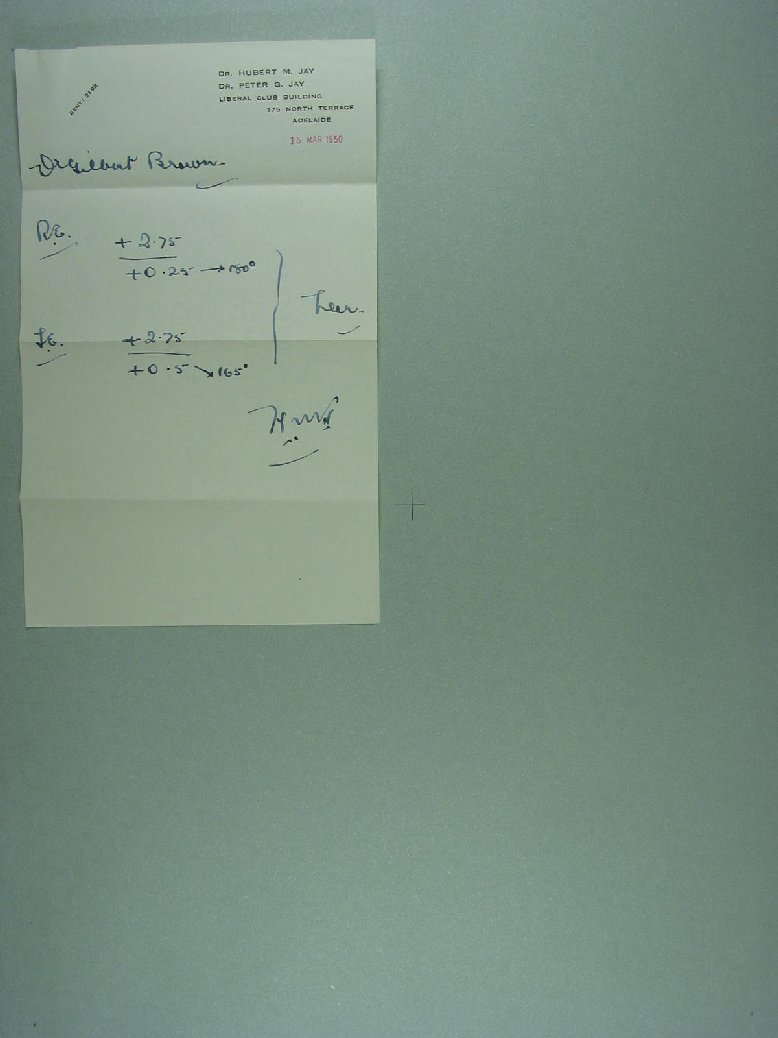 CENT. 2102
DR. HUBERT M. JAY
DR. PETER G. JAY
LIBERAL CLUB BUILDING
175 NORTH TERRACE
ADELAIDE
15 MAR 1950
Dr Gilbert Brown
R.E.
+ 2.75
+0.25 → 180°
L.E.
+ 2.75
+0.5 → 165°